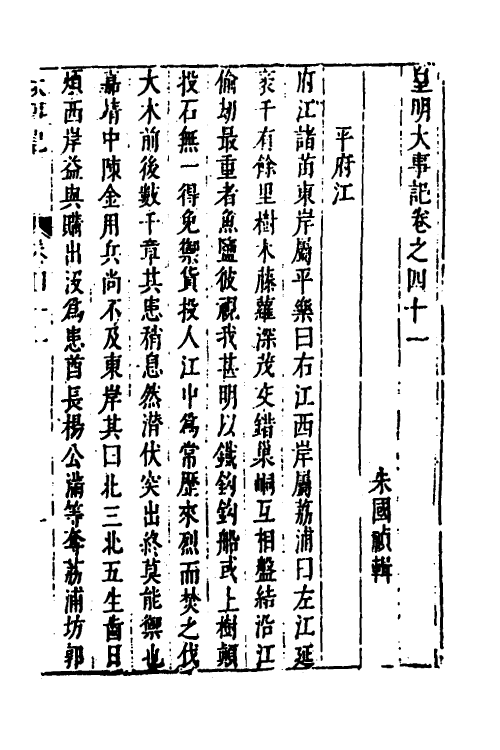 皇明大事記卷之四十一
朱國禎輯
平府江
府江諸苗東岸屬平樂曰右江西岸屬荔浦曰左江延
袤千有餘里樹木藤蘿深茂交錯巢峒互相盤結沿江
偷刼最重者魚鹽彼視我甚明以鐵鈎鈎船或上樹顛
投石無一得免禦貨投人江中爲常歷來烈而焚之伐
大木前後數千章其患稍息然潛伏突出終莫能禦也
嘉靖中陳金用兵尚不及東岸其曰北三北五生齒日
煩西岸益與購出沒爲患酋長楊公滿等奪荔浦坊郭